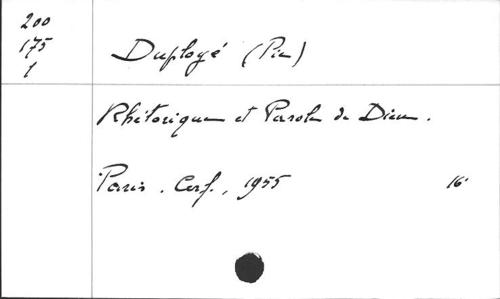 200
175
1
Duployé (Pie)
Rhétorique et Parole de Dieu.
Paris. Cerf., 1955 16°